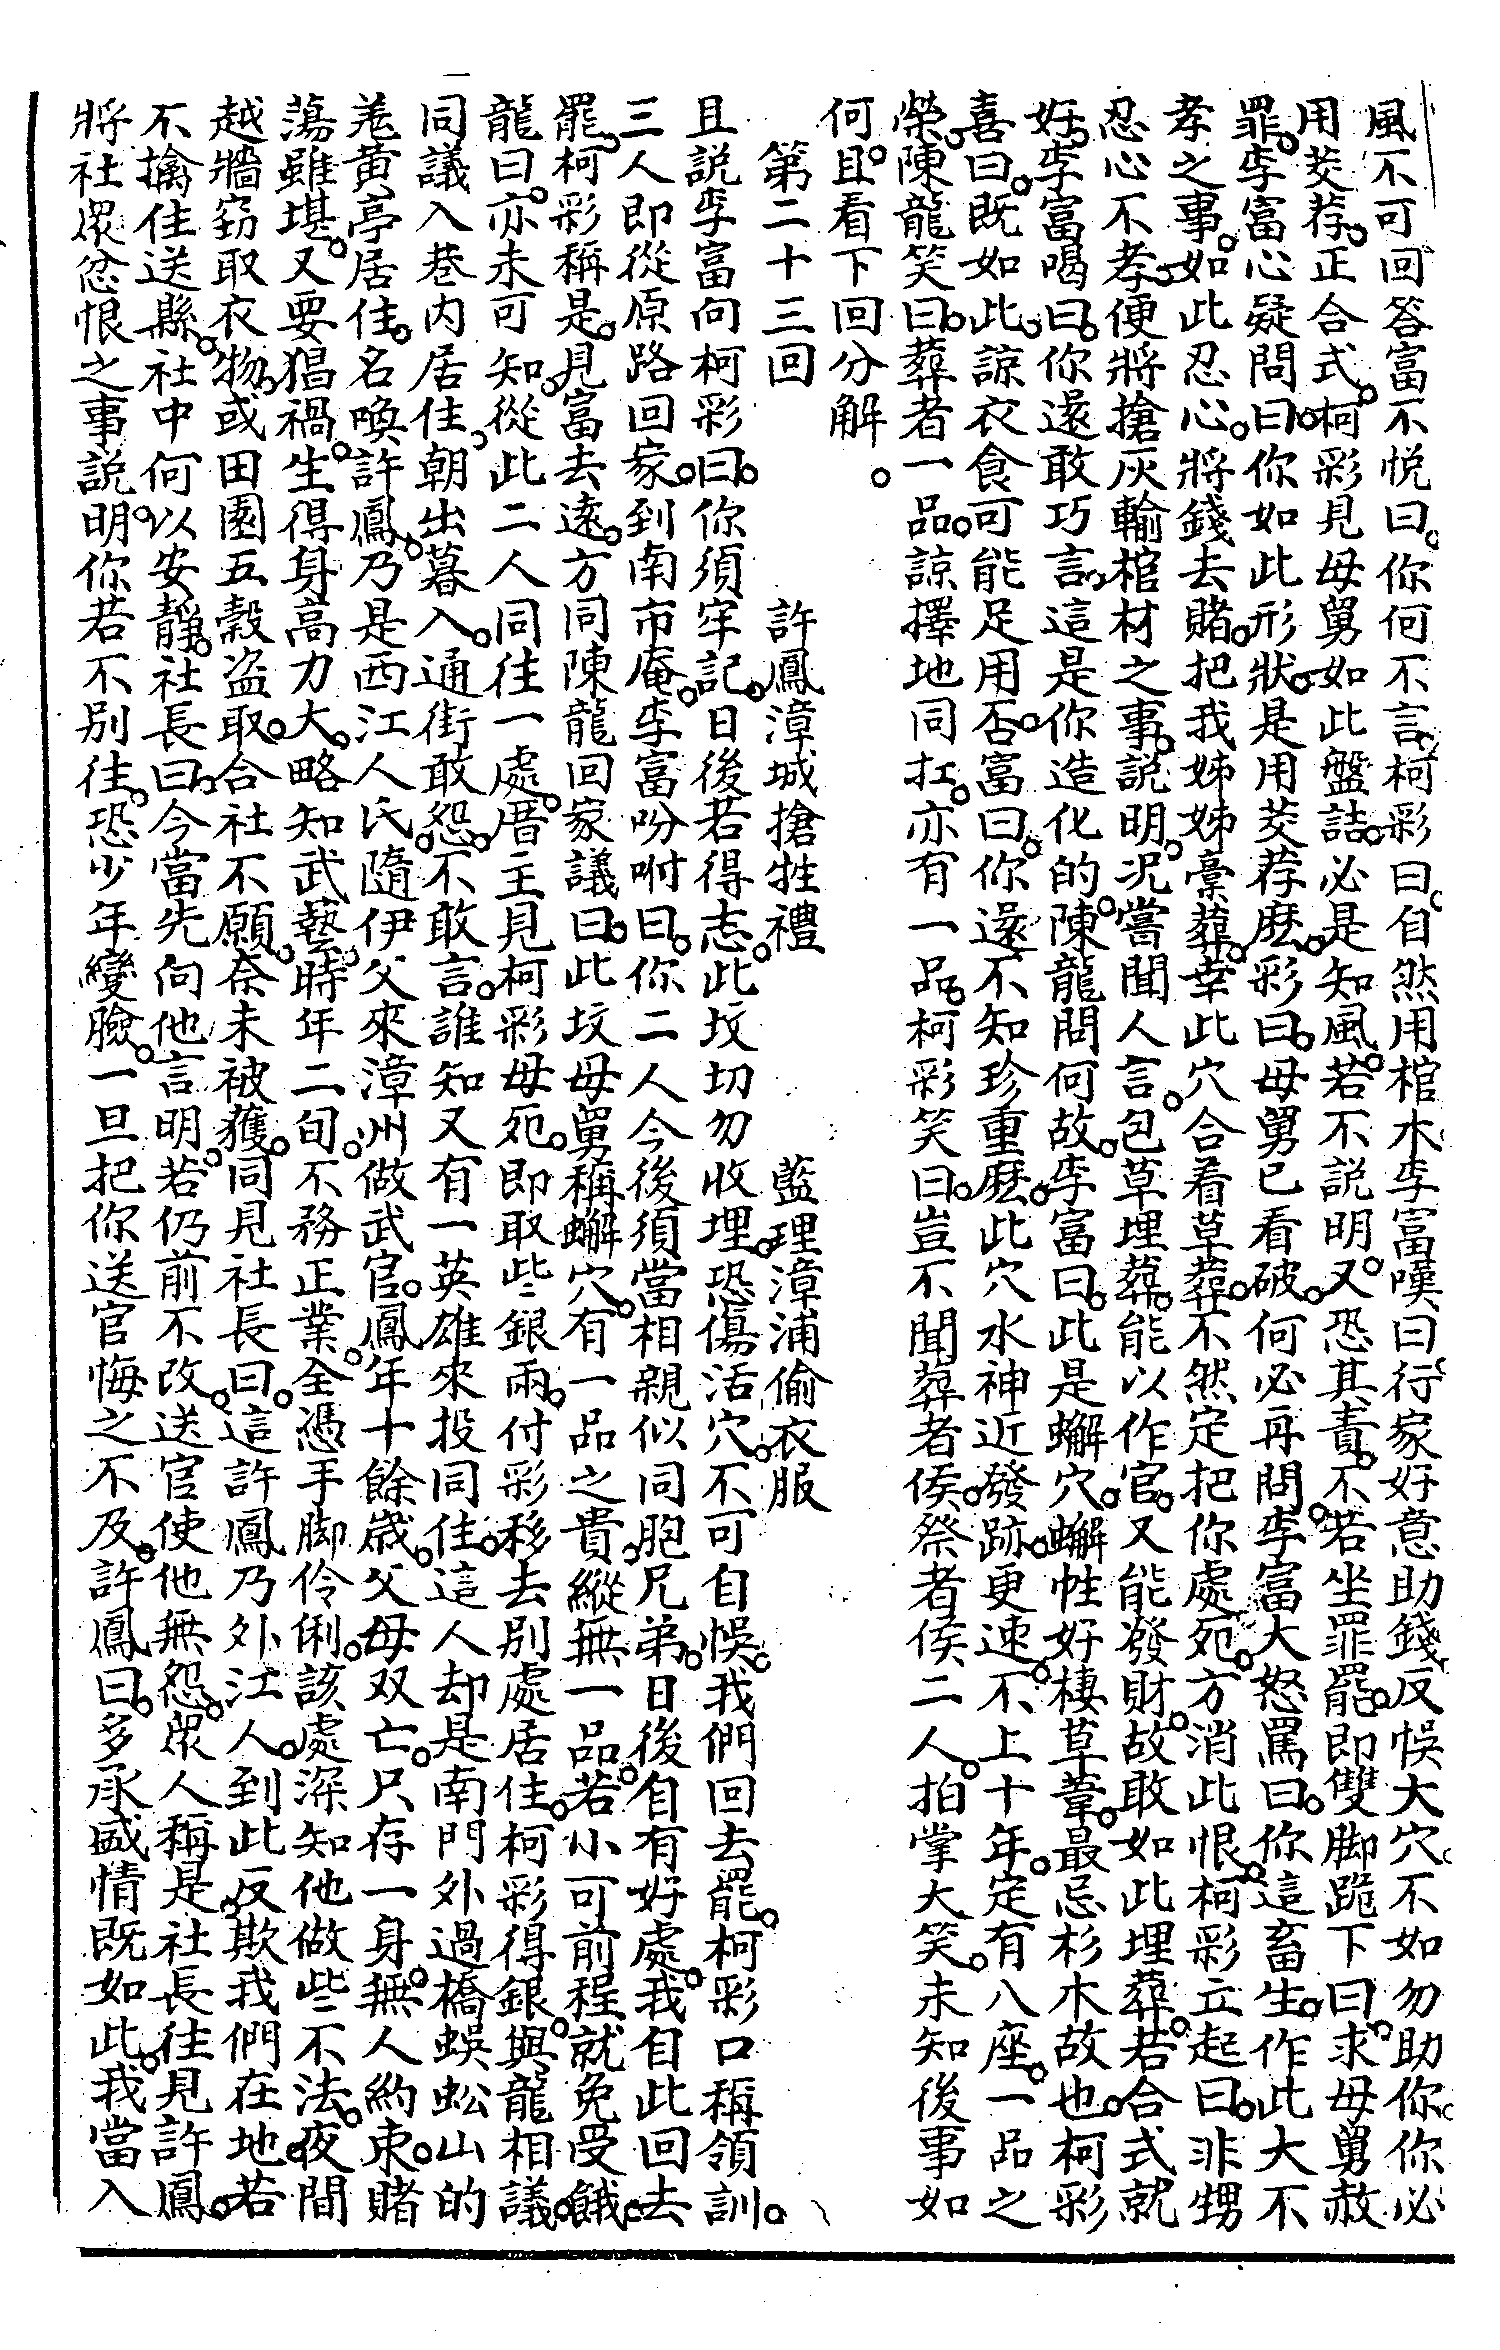 風不可回答富不悅曰。你何不言。柯彩曰。自然用棺木。李富嘆曰。行家好意助錢。反悞大穴。不如勿助你。你必
用茭荐。正合式。柯彩見母舅如此盤詰。必是知風。若不說明。又恐其責。不若坐罪罷。即雙脚跪下曰。求母舅赦
罪。李富心疑問曰。你如此形狀。是用茭荐麽。彩曰。母舅已看破。何必再問。李富大怒罵曰。你這畜生。作此大不
孝之事。如此忍心。將錢去賭。把我姊姊稾葬。幸此穴合看草葬。不然定把你處死。方消此恨。柯彩立起曰。非甥
忍心不孝。便將搶灰輸棺材之事。說明。况嘗聞人言。包草埋葬。能以作官。又能發財。故敢如此埋葬。若合式就
好。李富喝曰。你遠敢巧言。這是你造化的。陳龍問何故。李富曰。此是蠏穴。蠏性好棲草葦。最忌杉木故也。柯彩
喜曰。既如此。諒衣食可能足用否。富曰。你遠不知珍重麽。此穴水神近發跡。更速。不上十年。定有八座。一品之
榮。陳龍笑曰。葬者一品。諒擇地同扛。亦有一品。柯彩笑曰。豈不聞葬者侯。祭者侯二人。拍掌大笑。未知後事如
何。且看下回分解。
第二十三回　許鳳漳城搶牲禮　藍理漳浦偷衣服
且說李富向柯彩曰。你須牢記。日後若得志。此坟切勿收埋。恐傷活穴。不可自悞。我們回去罷。柯彩口稱領訓。
三人即從原路回家。到南市庵。李富吩咐曰。你二人今後須當相親似同胞兄弟。日後自有好處。我自此回去
罷。柯彩稱是。見富去遠。方同陳龍回家議曰。此坟母舅稱蠏穴。有一品之貴。縱無一品。若小可前程。就免受餓。
龍曰。亦未可知。從此二人同往一處。厝主見柯彩母死。即取些銀兩。付彩移去別處居住。柯彩得銀。與龍相議。
同議入巷內居住。朝出暮入。通街敢怨。不敢言。誰知又有一英雄來投同住。這人却是南門外過橋蜈蚣山的
羗黄亭居住。名喚許鳳。乃是西江人氏。隨伊父來漳州做武官。鳳年十餘歲。父母双亡。只存一身。無人約束。賭
蕩雖堪。又要猖禍。生得身高力大。略知武藝。時年二旬。不務正業。全憑手脚伶俐。該處深知他做些不法。夜間
越牆窈取衣物。或田園五穀盗取。合社不願。奈未被獲。同見社長曰。這許鳳乃外江人。到此反欺我們在地。若
不擒住送縣。社中何以安靜。社長曰。今當先向他言明。若仍前不改。送官使他無怨。眾人稱是。社長往見許鳳。
將社眾忿恨之事說明。你若不別往。恐少年變臉。一旦把你送官悔之不及。許鳳曰。多承盛情既如此。我當入